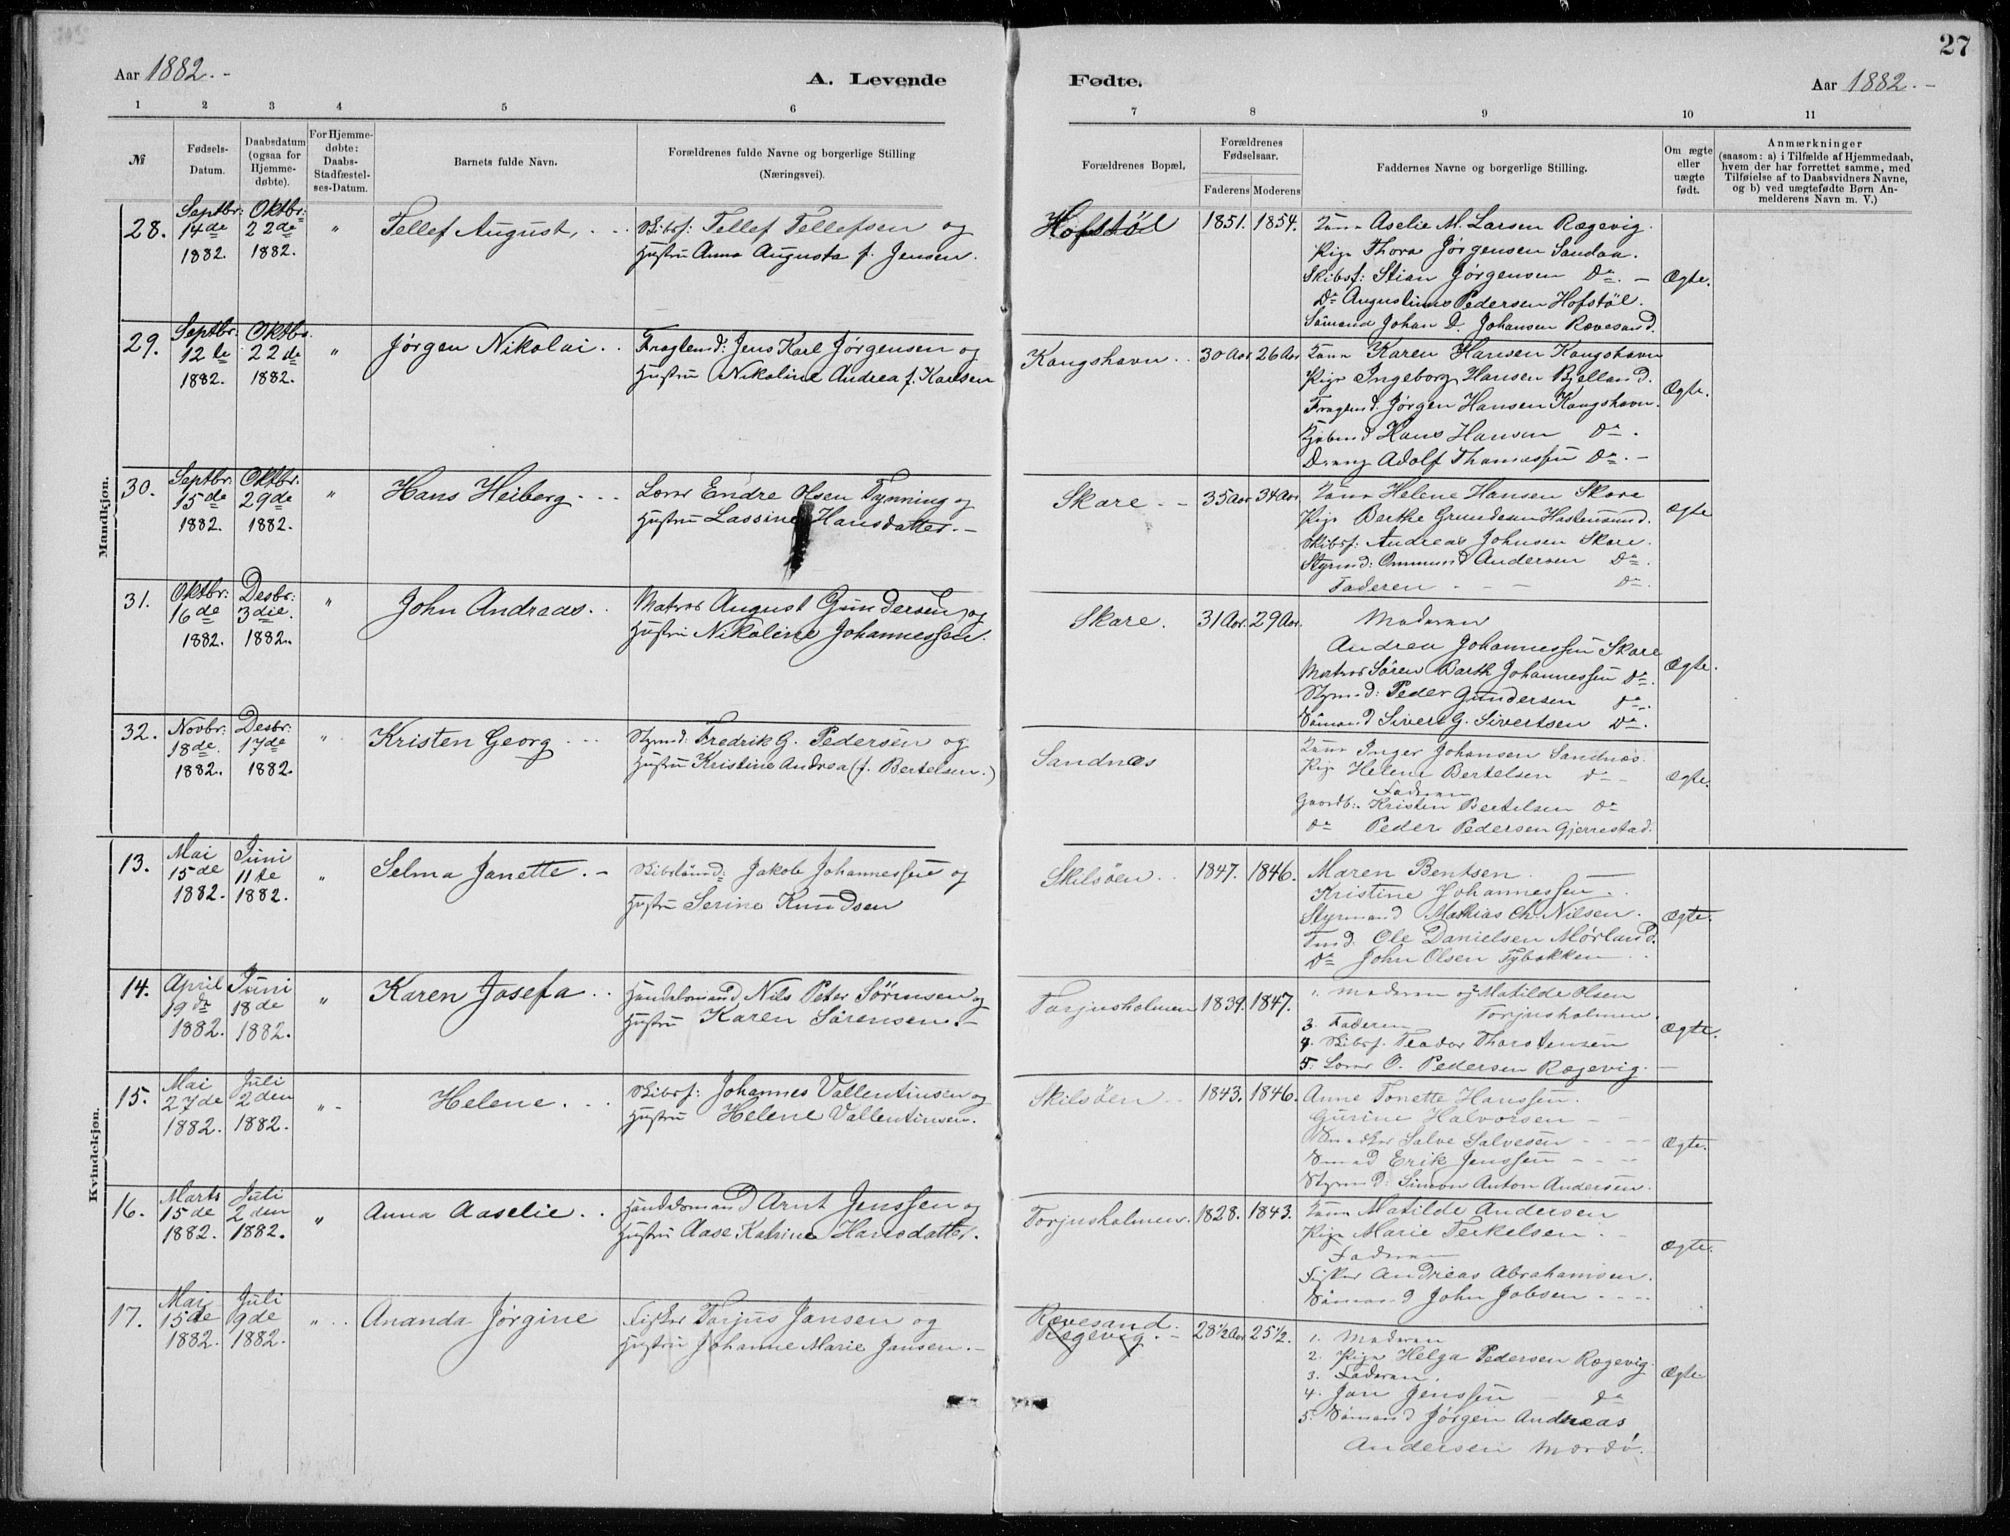 27
Aar 1882.
A. Levende
Fødte.
Aar 1882.
1 2 3 4 5 6 7 8 9 10 11
№
Fødsels-
Datum.
Daabsdatum
(ogsaa for
Hjemme-
døbte).
For Hjemme-
døbte:
Daabs-
Stadfæstel-
ses-Datum.
Barnets fulde Navn.
Forældrenes fulde Navne og borgerlige Stilling
(Næringsvei).
Forældrenes Bopæl,
Forældrenes
Fødselsaar.
Faderens Moderens
Faddernes Navne og borgerlige Stilling.
Om ægte
eller
uægte
født.
Anmærkninger
(saasom: a) i Tilfælde af Hjemmedaab,
hvem der har forrettet samme, med
Tilføielse af to Daabsvidners Navne,
og b) ved uægtefødte Børn An-
melderens Navn m. V.)
Mandkjøn.
28.
Septbr: 14de 1882.
Oktbr: 22de 1882.
"
Tellef August,
Skibsf: Tellef Tellefsen og
Hustru Anna Augusta f. Jensen.
Hofstøl
1851. 1854.
Kone Aselie M. Larsen Rægevig.
Pige Thora Jørgensen Sandaa.
Skibsf: Stian Jørgensen Do.
Do Augustinus Pedersen Hofstøl.
Sömand Johan D. Johansen Rævesand.
Ægte.
29.
Septbr. 12te 1882.
Oktbr. 22de 1882.
"
Jørgen Nikolai
Fragtmd: Jens Karl Jørgensen og
Hustru Nikoline Andrea f. Karlsen
Kongshavn
30 Aar 26 Aar
Kone Karen Hansen Kongshavn
Pige Ingeborg Hansen Bjelland.
Fragtmd. Jørgen Hansen Kongshavn.
Hans Hansen Do.
Dreng Adolf Thomassen Do.
Ægte.
30.
Septbr. 15de 1882.
Oktbr. 29de 1882.
"
Hans Heiberg
Lærer Endre Olsen Tynning og
Hustru Lassine Hansdatter.
Skare
35 Aar 34 Aar
Kone Helene Hansen Skare
Pige Berthe Gundersen Hastensund.
Skibsf: Andreas Johnsen Skare.
Styrmd: Ommund Andersen Do.
Faderen Do.
Ægte
31.
Oktbr: 16de 1882.
Desbr: 3die. 1882.
"
John Andreas.
Matros August Gundersen og
Hustru Nikoline Johannessen.
Skare.
31 Aar. 29 Aar.
Moderen
Andrea Johannessen Skare
Matros Sören Barth Johannessen Do.
Styrmd: Peder Gundersen Do.
Sömand Sivert G. Sivertsen Do.
Ægte.
32.
Novbr: 18de. 1882.
Desbr: 17de 1882.
"
Kristen Georg
Styrmd: Fredrik G. Pedersen og
Hustru Kristine Andrea (f. Bertelsen.)
Sandnæs
Kone Inger Johansen Sandnæs.
Pige Helene Bertelsen Do
Faderen
Gaardb: Kristen Bertelsen Do
Do Peder Pedersen Gjerrestad.
Ægte.
Kvindekjøn.
13.
Mai 15de 1882.
Juni 11te 1882.
"
Selma Janette.
Jakob Johannessen og
Hustru Serine Knudsen
Skilsöen
1847. 1846.
Maren Bentsen
Kristine Johannessen
Styrmand Mathias Ch. Nilsen.
Tmd: Ole Danielsen Mørland.
Do John Olsen Tybakken
Ægte.
14.
April 19de 1882.
Juni 18de 1882.
"
Karen Josefa
Handelsmand Nils Peter Sörensen og
Hustru Karen Sörensen.
Torjusholmen
1839. 1847.
1. Moderen og 2 Matilde Olsen
Torjusholmen.
3. Faderen
4. Skibsf. Teodor Thorstensen
5. Lærer O. Pedersen Rægevig.
Ægte.
15.
Mai 27de 1882.
Juli 2den 1882.
"
Helene.
Skibsf: Johannes Vallentinsen og
Hustru Helene Vallentinsen.
Skilsöen
1843. 1846.
Anne Tonette Hanssen.
Gurine Halvorsen
Salve Salvesen
Erik Jenssen
Styrmd: Simon Anton Andersen.
Ægte.
16.
Marts 15de 1882.
Juli 2den 1882.
"
Anna Aaselie.
Handelsmand Arnt Jenssen og
Hustru Aase Katrine Hansdatter.
Torjusholmen.
1828. 1843.
Kone Matilde Andersen
Pige Marie Terkelsen.
Faderen
Fisker Andreas Abrahamsen.
Sömand John Jobsen
Ægte.
17.
Mai 15de 1882.
Juli 9de 1882.
"
Ananda Jørgine
Fisker Torjus Jansen og
Hustru Johanne Marie Jansen.
Rævesand.
Rægevig.
28½ Aar 25½.
1. Moderen
2. Pige Helga Pedersen Rægevig.
3. Faderen.
4. Jan Jenssen Do
5. Sömand Jörgen Andreas
Andersen Mærdö.
Ægte